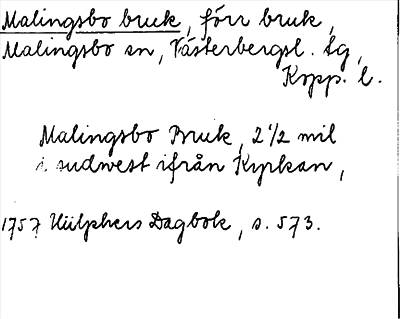 Malingsbo bruk, förr bruk,
Malingsbo sn, Västerbergsl. tg,
Kopp. l.
Malingsbo Bruk, 2 1/2 mil
i sudwest ifrån Kyrkan,
1757 Hülphers Dagbok, s. 573.